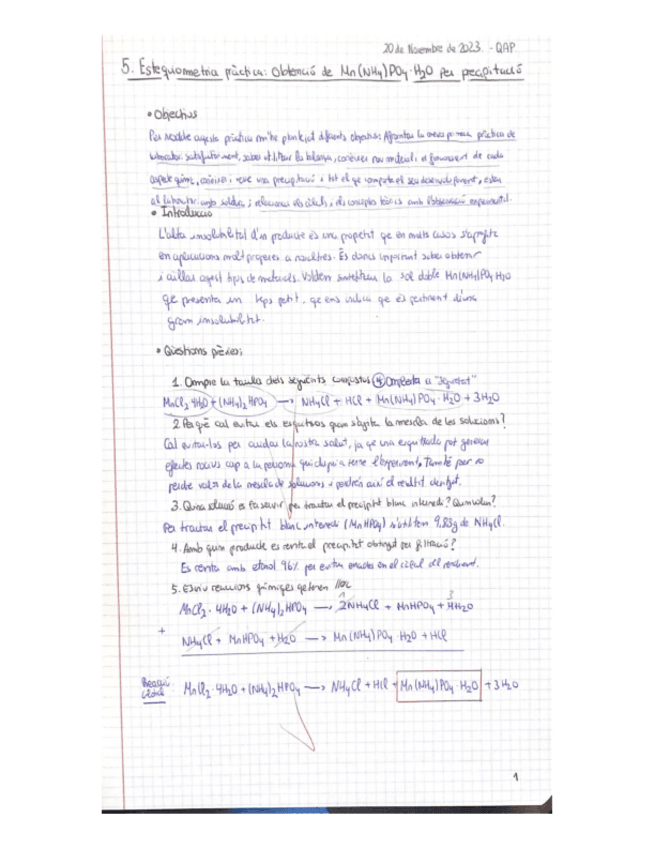 20 de Novembre de 2023. - QAP
5. Estequiometria pràctica: Obtenció de Mn(NH4)PO4·H2O per precipitació
• Objectius
Per realitzar aquesta pràctica m'he plantejat diferents objectius: Afrontar la meva primera pràctica de
laboratori satisfactòriament, saber utilitzar la balança, conèixer nou material i el funcionament de cada
químic, conèixer què una precipitació i tot el que comporta el seu desenvolupament, estar
al laboratori amb soldesa i relacionar els càlculs i els conceptes teòrics amb l'observació experimental.
• Introducció
L'alta insolubilitat d'un producte és una propietat que en molts casos s'aprofita
en aplicacions molt properes a nosaltres. És doncs important saber obtenir
i aïllar aquest tipus de materials. Voldem sintetitzar la sal doble Mn(NH4)PO4·H2O
que presenta un Kps petit, que ens indica que és pertinent d'una
gran insolubilitat.
• Qüestions prèvies:
1. Omple la taula dels següents compostos Completa a "seguretat"
MnCl2·4H2O + (NH4)2HPO4 → NH4Cl + HCl + Mn(NH4)PO4·H2O + 3H2O
2. Perquè cal evitar els esquitxos quan s'agita la mescla de les solucions?
Cal evitar-los per cuidar la nostra salut, ja que una esquitxada pot generar
efectes nocius cap a la persona qui dugui a terme l'experiment. També per no
perdre valor de la mescla de solucions i perdrà així el resultat desitjat.
3. Quina solució es fa servir per tractar el precipitat blanc intermedi? Quin volum?
Per tractar el precipitat blanc intermedi (MnHPO4) s'utilitzen 9,83g de NH4Cl.
4. Amb quin producte es renta el precipitat obtingut per filtració?
Es renta amb etanol 96% per evitar errades en el càlcul del rendiment.
5. Escriu reaccions químiques que tenen lloc
1 3
MnCl2·4H2O + (NH4)2HPO4 → 2NH4Cl + MnHPO4 + 4H2O
+ NH4Cl + MnHPO4 + H2O → Mn(NH4)PO4·H2O + HCl
Reacció global: MnCl2·4H2O + (NH4)2HPO4 → NH4Cl + HCl + Mn(NH4)PO4·H2O + 3H2O
1